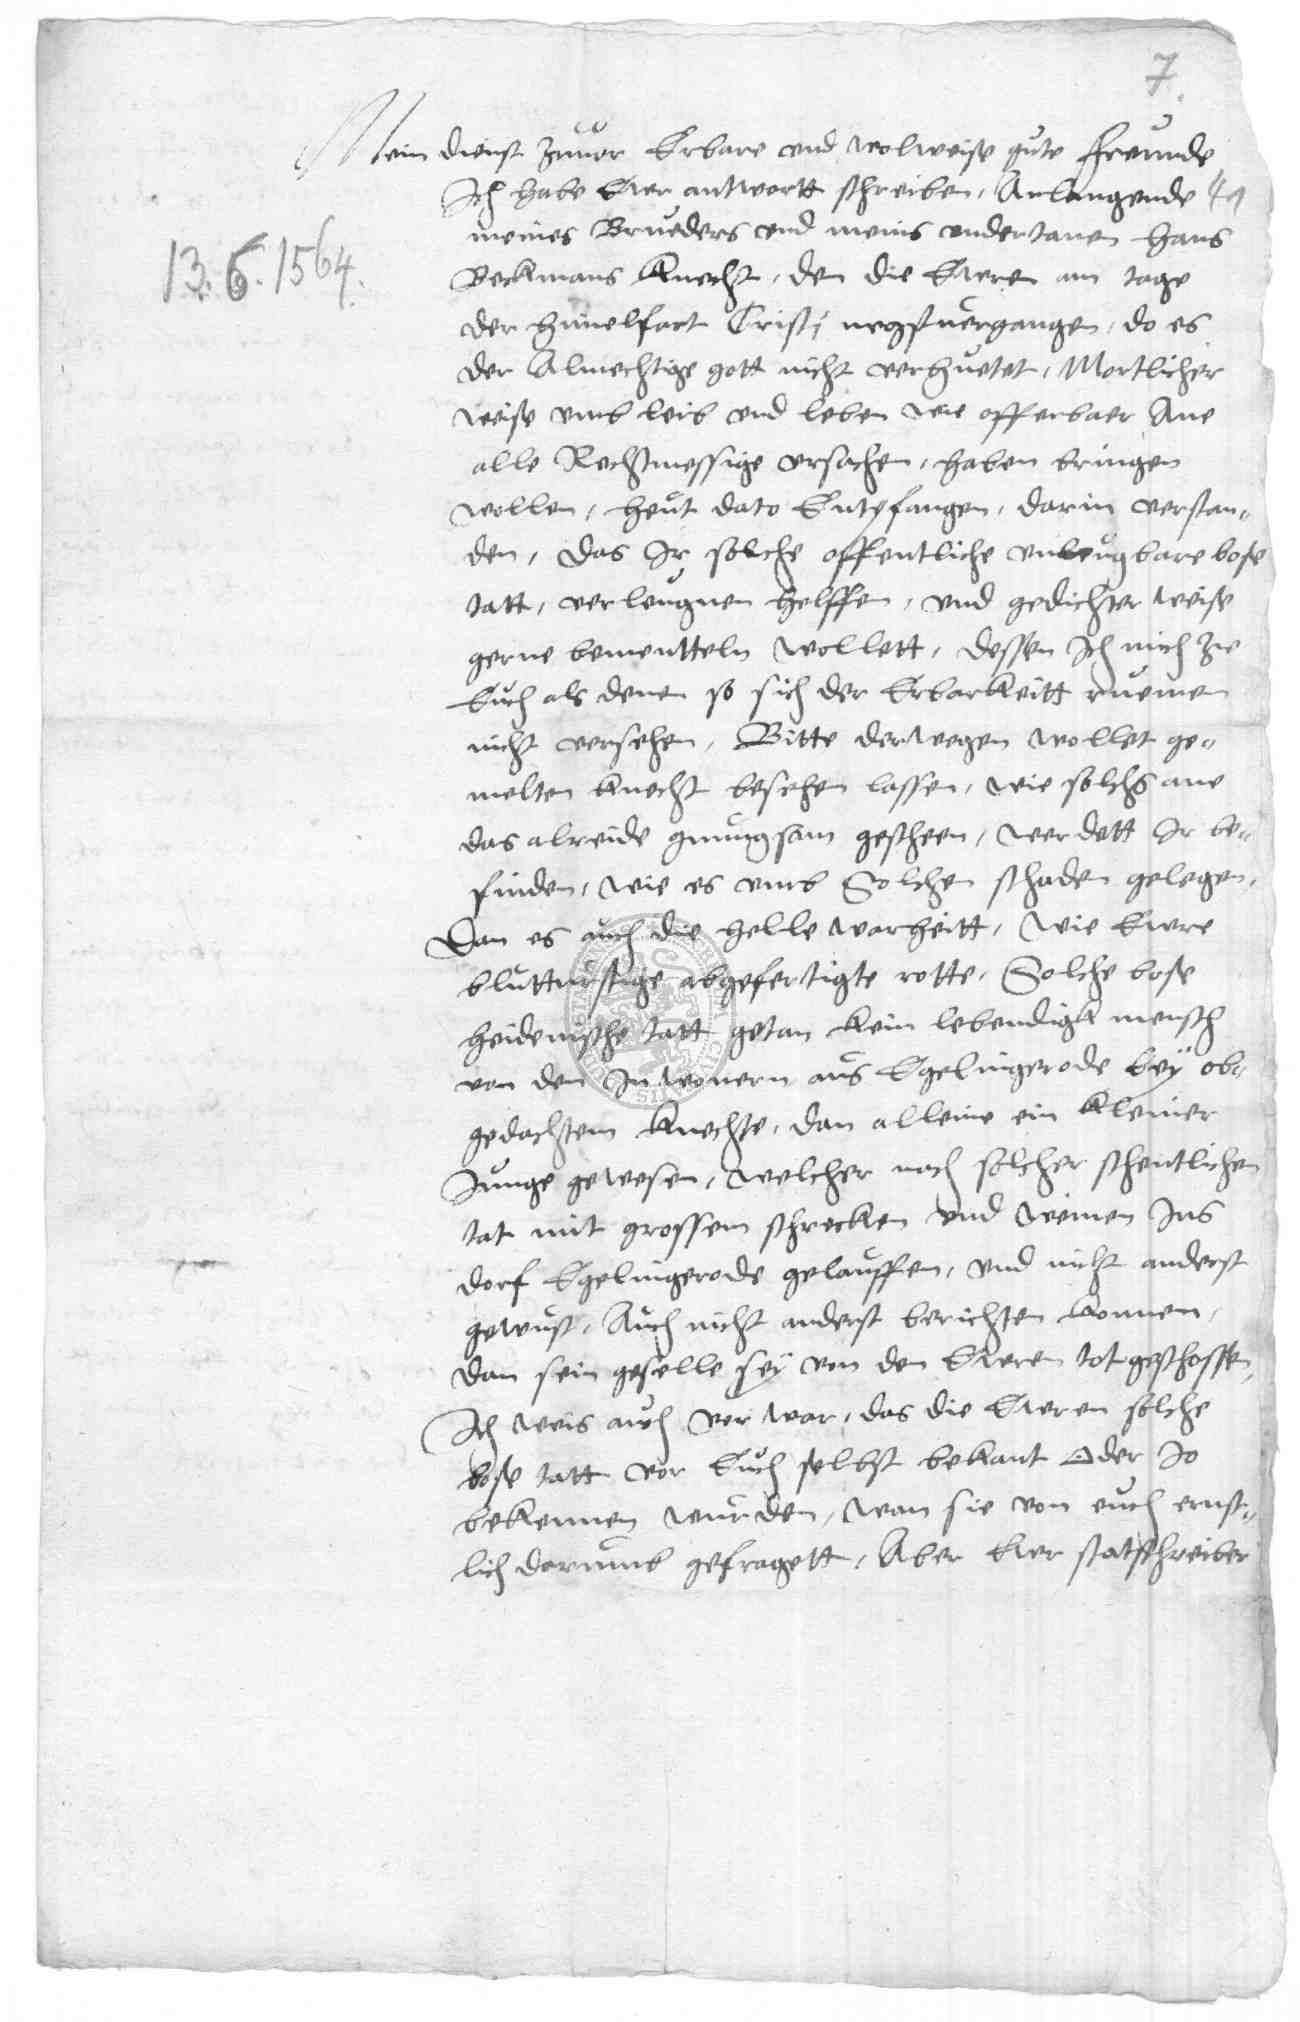 7.
Mein dienst zuuor Erbare vnd wolweise gute freunde
Ich habe Ewer antwortt schreiben, Anlangende
meines Brueders vnd meins vndertanen Hans
13. 6. 1564.
Beckmans knecht, den die Ewren am tage
der himelfart Cristi negstuergangen, do es
der Almechtige gott nicht verhuetet, Mortlicher
weise vmb leib vnd leben wie offenbaer Ane
alle Rechtmessige vrsachen, haben bringen
wollen, heut dato Entpfangen, darin verstan-
den, das Ir solche offentliche vnleugbare bose
tatt, verleugnen helffen, vnd gedichter weise
gerne bementteln wollett, dessen Ich mich zu
Euch als denen so sich der Erbarkeitt ruemen
nicht versehen, Bitte derwegen wollet ge-
melten knecht besehen lassen, wie solchs ane
das alreide gnungsam gescheen, werdett Ir be-
finden, wie es vmb Solchen schaden gelegen,
Dan es auch die helle warheitt, wie Ewre
blutturstige abgefertigte rotte, Solche bose
heidenische tatt getan kein lebendigk mensch
von den Inwonern aus Egelingerode bey ob-
gedachtem knechte, dan alleine ein kleiner
Junge gewesen, welcher nach solcher schentlichen
tat mit grossem schrecken vnd weinen Ins
dorf Egelingerode gelauffen, vnd nicht anderst
gewust, Auch nicht anderst berichten konnen,
dan sein geselle sey von den Ewren tot geschossen,
Ich weis auch vor war, das die Ewren solche
bose tatt vor Euch selbst bekant Oder Jo
bekennen wurden, wan sie von euch ernst-
lich darumb gefragett, Aber Ewer statschreiber